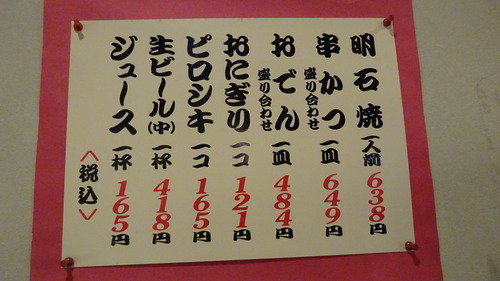 明石焼 一人前 638円
串かつ 盛り合わせ 一皿 649円
おでん 盛り合わせ 一皿 484円
おにぎり 一コ 121円
ピロシキ 一コ 165円
生ビール(中) 一杯 418円
ジュース 一杯 165円
〈税込〉